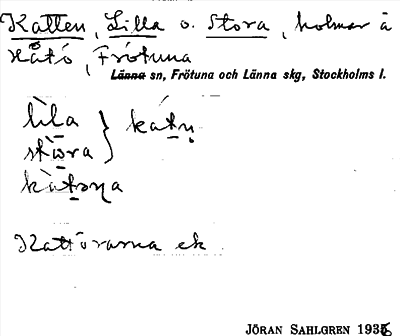 Katten, Lilla o. Stora, holmar å
Håtö, Frötuna
Länna sn, Frötuna och Länna skg, Stockholms l.
lìla } katṇ
stòra
kàtəṇa
Kattörarna ek
JÖRAN SAHLGREN 1936